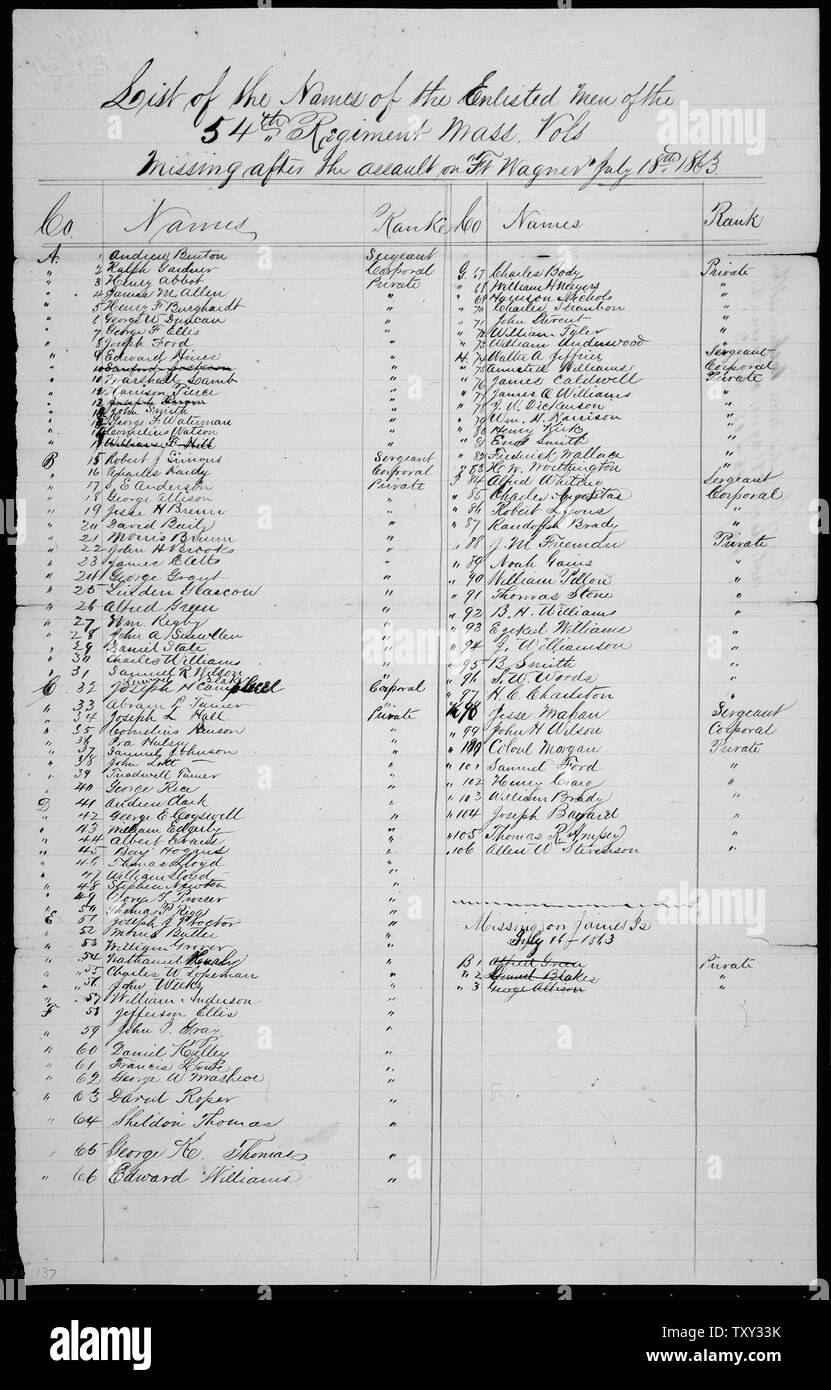 List of the Names of the Enlisted Men of the
54th Regiment Mass. Vols
Missing after the assault on "Ft Wagner" July 18th 1863.
Co. Names Rank
A. 1 Andrew Benton Sergeant
" 2 Ralph Gardner Corporal
" 3 Henry Abbot Private
" 4 James M. Allen "
" 5 Henry F Burghardt "
" 6 George W Duncan "
" 7 George F Ellis "
" 8 Joseph Ford "
" 9 Edward Hines "
" 10 Sanford Jackson "
" 10 Marshall Lamb "
" Harrison Pierce "
" 12 Joseph "
" John Smith "
" George F Waterman "
" Cornelius Watson "
" William F Hill "
B 15 Robert J Simmons Sergeant
" 16 Charles Hardy Corporal
" 17 S. E Anderson Private
" 18 George Allison "
" 19 Jesse H Brown "
" 20 David Baily "
" 21 Morris Brown "
" 22 John H Brooks "
" 23 James Eletts "
" 24 George Grant "
" 25 Linden Glascon "
" 26 Alfred Green "
" 27 Wm. Rigby "
" 28 John A Snowllen "
" 29 Daniel State "
" 30 Charles Williams "
" 31 Samuel R Wilson "
Lemuel Blake
C. 32 Joseph H Campbell Corporal
" 33 Abram P Turner "
" 34 Joseph L Hall Private
" 35 Cornelius Henson "
" 36 Ira Hulsey "
" 37 Samuel Johnson "
" 38 John Lott "
" 39 Treadwell Turner "
" 40 George Rice "
D 41 Andrew Clark "
" 42 George E Cogswell "
" 43 William Edgerly "
" 44 Albert Evans "
" 45 Benj Hogans "
" 46 Thomas Lloyd "
" 47 William Lloyd "
" 48 Stephen Newton "
" 49 George T. Prosser "
" 50 Thomas P Riggs "
E 51 Joseph J Proctor "
" 52 Morris Butler "
" 53 William Grover "
" 54 Nathaniel Hurley "
" 55 Charles W Hopeman "
" 56 John Weeks "
" 57 William Anderson "
F 58 Jefferson Ellis "
" 59 John I. Gray "
" 60 Daniel Kelley "
" 61 Francis Lowe "
" 62 George W Mashroe "
" 63 David Roper "
" 64 Sheldon Thomas "
" 65 George K. Thomas "
" 66 Edward Williams "
Co Names Rank
G 67 Charles Body Private
" 68 William H Meyers "
" 69 Harrison Nichols "
" 70 Charles Stanton "
" 71 John Stevent "
" 72 William Tyler "
" 73 William Underwood "
H. 74 Walter A Jeffries Sergeant
" 75 Armsted Williams Corporal
" 76 James Caldwell Private
" 77 James O Williams "
" 78 J. W. Dickenson "
" 79 Wm. H. Harrison "
" 80 Henry Kirk "
" 81 Enos Smith "
" 82 Frederick Wallace "
" 83 H. W. Worthington "
I 84 Alfred Whiting Sergeant
" 85 Charles Augustas Corporal
" 86 Robert Lyons "
" 87 Randolph Brady "
" 88 J. M. Freeman Private
" 89 Noah Gains "
" 90 William Pillow "
" 91 Thomas Stone "
" 92 B. H. Williams "
" 93 Ezekiel Williams "
" 94 J. Williamson "
" 95 B. Smith "
" 96 S. W. Woods "
" 97 H. C. Charlston "
K 98 Jesse Mahan Sergeant
" 99 John H Wilson Corporal
" 100 Colonel Morgan Private
" 101 Samuel Ford "
" 102 Henry Craig "
" 103 William Brady "
" 104 Joseph Bayard "
" 105 Thomas R Ampsey "
" 106 Allen W Stevenson "
Missing on James Is
July 16th 1863
B 1 Alfred Green Private
" 2 Lemuel Blakes "
" 3 George Allison "
137
alamy
Image ID: TXY33K
www.alamy.com